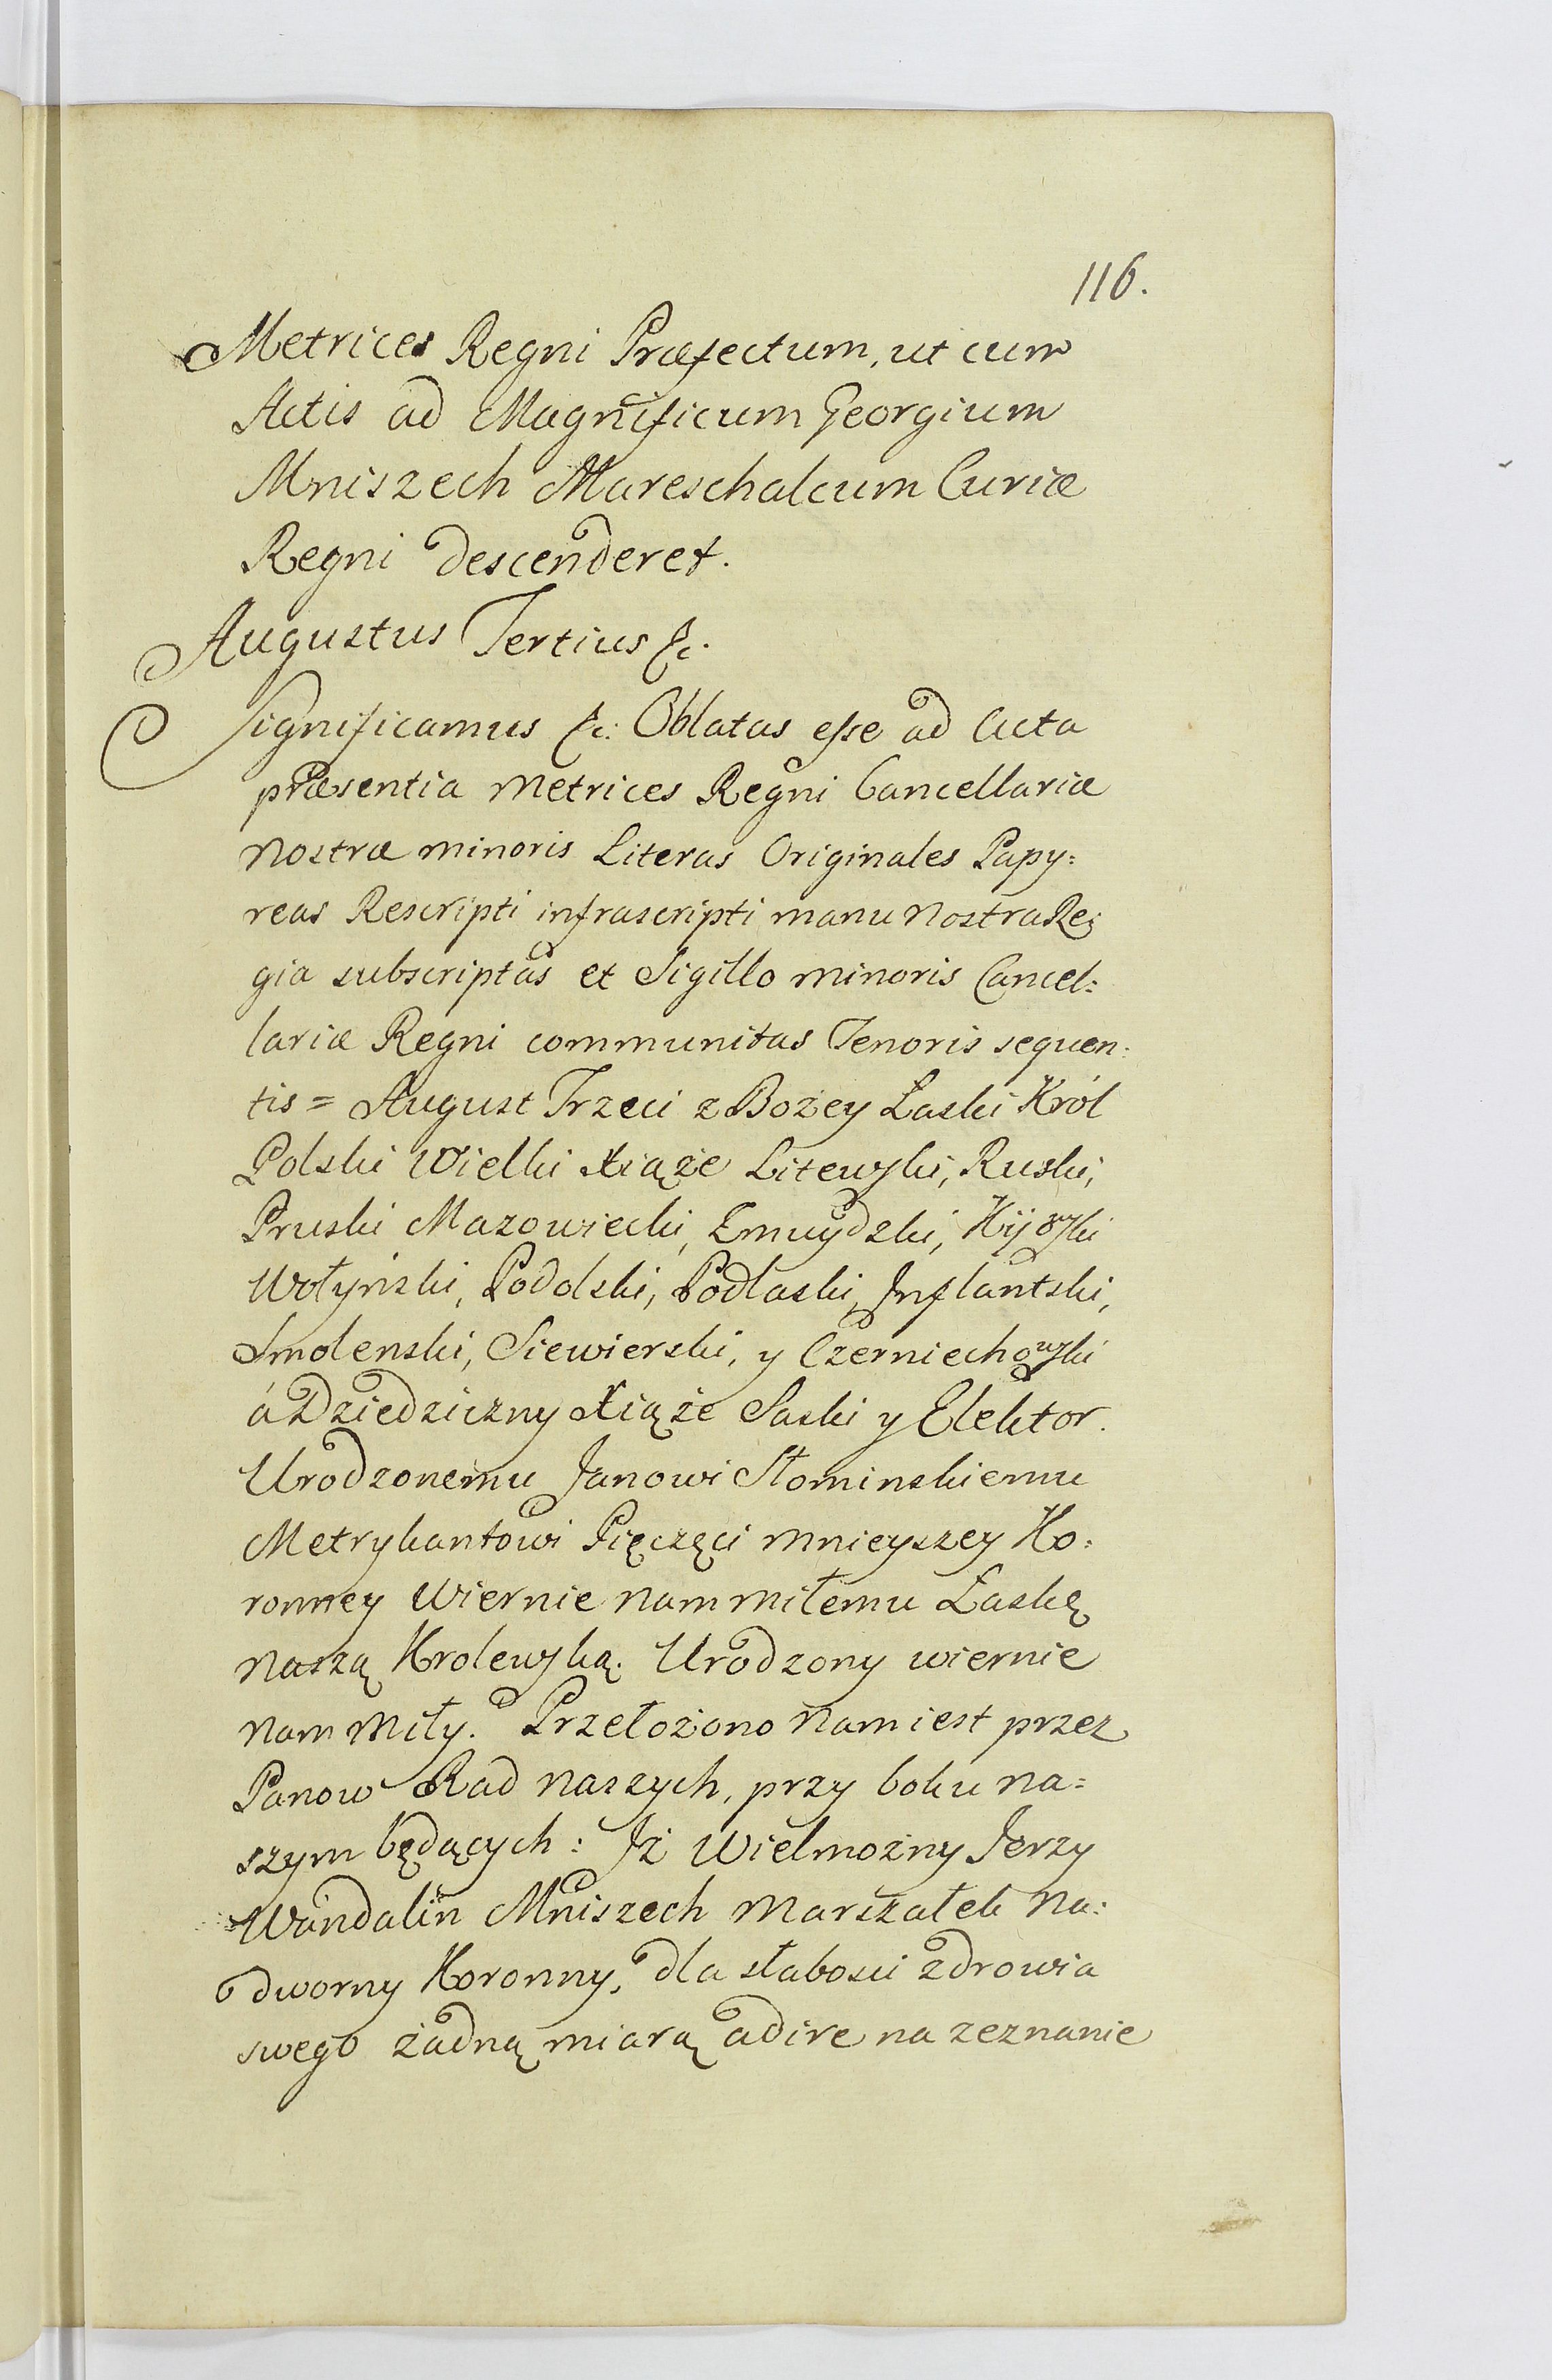 116.
Metrices Regni Præfectum, ut cum
Actis ad Magnificum Georgium
Mniszech Mareschalcum Curiæ
Regni descenderet.
Augustus Tertius &c.
Significamus &c: Oblatas esse ad Acta
præsentia Metrices Regni Cancellariæ
Nostræ minoris Literas Originales Papy:
reas Rescripti infrascripti manu Nostra Re:
gia subscriptas et Sigillo minoris Cancel:
lariæ Regni communitas Tenoris sequen:
tis = August Trzeci z Bożey Łaski Król
Polski Wielki Xiąże Litewski, Ruski,
Pruski Mazowiecki, Zmuydzki, Kijowski
Wołyński, Podolski, Podlaski, Inflantski,
Smolenski, Siewierski, y Czerniechowski
á Dziedziczny Xiąże Saski y Elektor.
Urodzonemu Janowi Słominskiemu
Metrykantowi Pięczęci mnieyszey Ko:
ronney Wiernie Nam miłemu Łaskę
Naszą Krolewską. Urodzony wiernie
Nam Miły. Przełożono Nam iest przez
Panow Rad Naszych, przy boku Na:
szym będących: Iż Wielmożny Jerzy
Wandalin Mniszech Marszałek Na:
dworny Koronny, dla słabosci zdrowia
swego żadną miarą adire na zeznanie